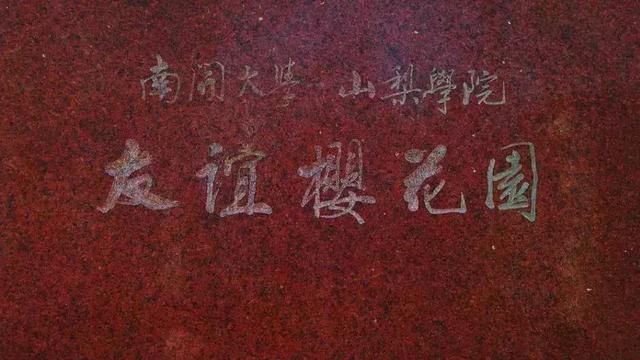 南開大學 山梨學院
友誼櫻花園